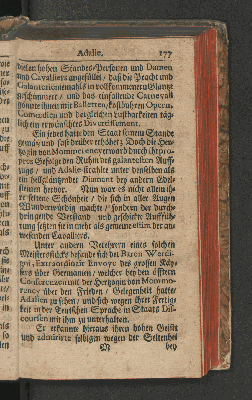 Adelie. 177
vielen hohen Standes-Personen und Damen
und Cavalliers angefüllet / daß die Pracht und
Galanterien niemahls in vollkommenerm Glantz
geschimmert / und das einfallende Carneval
konnte ihnen mit Balletten, kostbahren Opern,
Comœdien und dergleichen Lustbarkeiten täg-
lich ein erwünschtes Divertissement.
Ein jedes hatte den Staat seinem Stande
gemäß und fast drüber erhöhet; Doch die Her-
zogin von Mommorency ward durch ihr pro-
pres Gefolge den Ruhm des galantesten Auff-
zugs / und Adalie strahlte unter denselben als
ein hellgläntzender Diamant bey andern Edel-
steinen hervor. Nun war es nicht allein ih-
rer seltene Schönheit / die sich in aller Augen
Wunderwürdig machte / sondern der durch-
dringende Verstand und geschickte Aufführ-
ung setzten sie in mehr als gemeine estim der an-
wesenden Cavalliers.
Unter andern Verehrern eines solchen
Meisterstücks befande sich der Baron
Extraordinair Envoye des grossen Käy-
sers über Germanien / welcher bey den öfftern
Conferenzen mit der Hertzogin von Mommo-
rency über den Frieden / Gelegenheit hatte /
Adalien zu sehen / und sich wegen ihrer Fertig-
keit in der Teutschen Sprache in Staats Dis-
coursen mit ihm zu unterhalten.
Er erkannte hieraus ihren hohen Geist
und admirirte selbigen wegen der Seltenheit
M bey